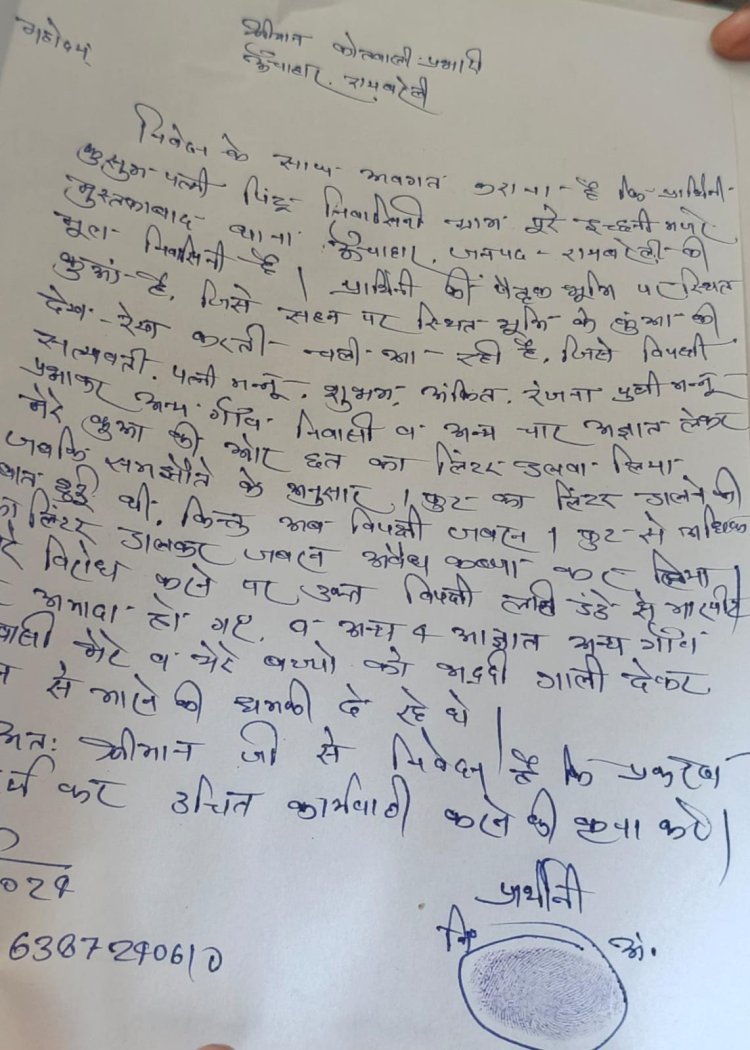 महोदय,
श्रीमान कोतवाली प्रभारी
ऊँचाहार, रायबरेली
निवेदन के साथ अवगत कराना है कि प्रार्थिनी
कुसुम पत्नी पिंटू निवासिनी ग्राम पूरे इच्छनी मजरे
मुस्तफाबाद थाना ऊँचाहार, जनपद - रायबरेली की
मूल निवासिनी है। प्रार्थिनी की पैतृक भूमि पर स्थित
कुआं है, जिसे सहन पर स्थित भूमि के कुंआ की
देख-रेख करती चली आ रही है, जिसे विपक्षी
सत्यवती पत्नी मन्नू, शुभम, अंकित, रंजना पुत्री मन्नू
प्रभाकर अन्य गाँव निवासी व अन्य चार अज्ञात लेकर
मेरे कुआ की ओर छत का लिंटर डलवा लिया
जबकि समझौते के अनुसार 1 फुट का लिंटर डालने की
बात हुई थी, किन्तु अब विपक्षी जबरन 1 फुट से अधिक
लिंटर डालकर जबरन अवैध कब्जा कर लिया।
विरोध करने पर उक्त विपक्षी लाठी डंडे से मारपीट
अमादा हो गए, व अन्य 4 अज्ञात अन्य गाँव
मेरे व मेरे बच्चो को भद्दी गाली देकर
से मारने की धमकी दे रहे थे।
अतः श्रीमान जी से निवेदन है कि प्रकरण
कर उचित कार्यवाही करने की कृपा करें।
024
प्रार्थीनी
6387240610
नि. अं.